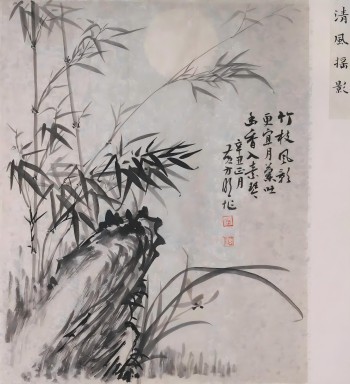 清風搖影
竹枝風影
更宜月蕙吐
幽香入素琴
辛丑正月
作